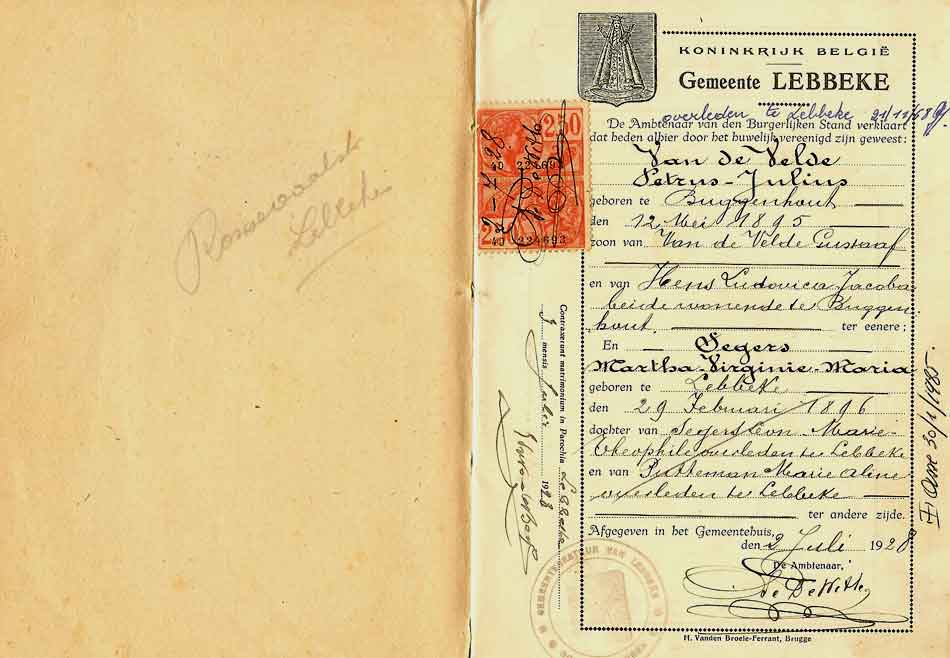 Lebbeke
KONINKRIJK BELGIË
Gemeente LEBBEKE
overleden te Lebbeke 21/11/68
De Ambtenaar van den Burgerlijken Stand verklaart
dat heden alhier door het huwelijk vereenigd zijn geweest:
Van de Velde
Petrus-Julius
geboren te Buggenhout
den 12 Mei 1895
zoon van Van de Velde Gustaaf
en van Hens Ludovica Jacoba
beide wonende te Buggen-
hout. ter eenere;
En Segers
Martha-Virginie-Maria
geboren te Lebbeke
den 29 Februari 1896
dochter van Segers Leon Marie-
Theophile overleden te Lebbeke
en van Putteman Marie Aline
overleden te Lebbeke
ter andere zijde.
Afgegeven in het Gemeentehuis,
den 2 Juli 1928
De Ambtenaar,
De Witte
H. Vanden Broele-Ferrant, Brugge
2.50
224693
2-7-28
De Witte
40 224693
Contraxerunt matrimonium in Parochia Lebbeke
mensis 1928
GEMEENTEBESTUUR VAN LEBBEKE
30/1/1985